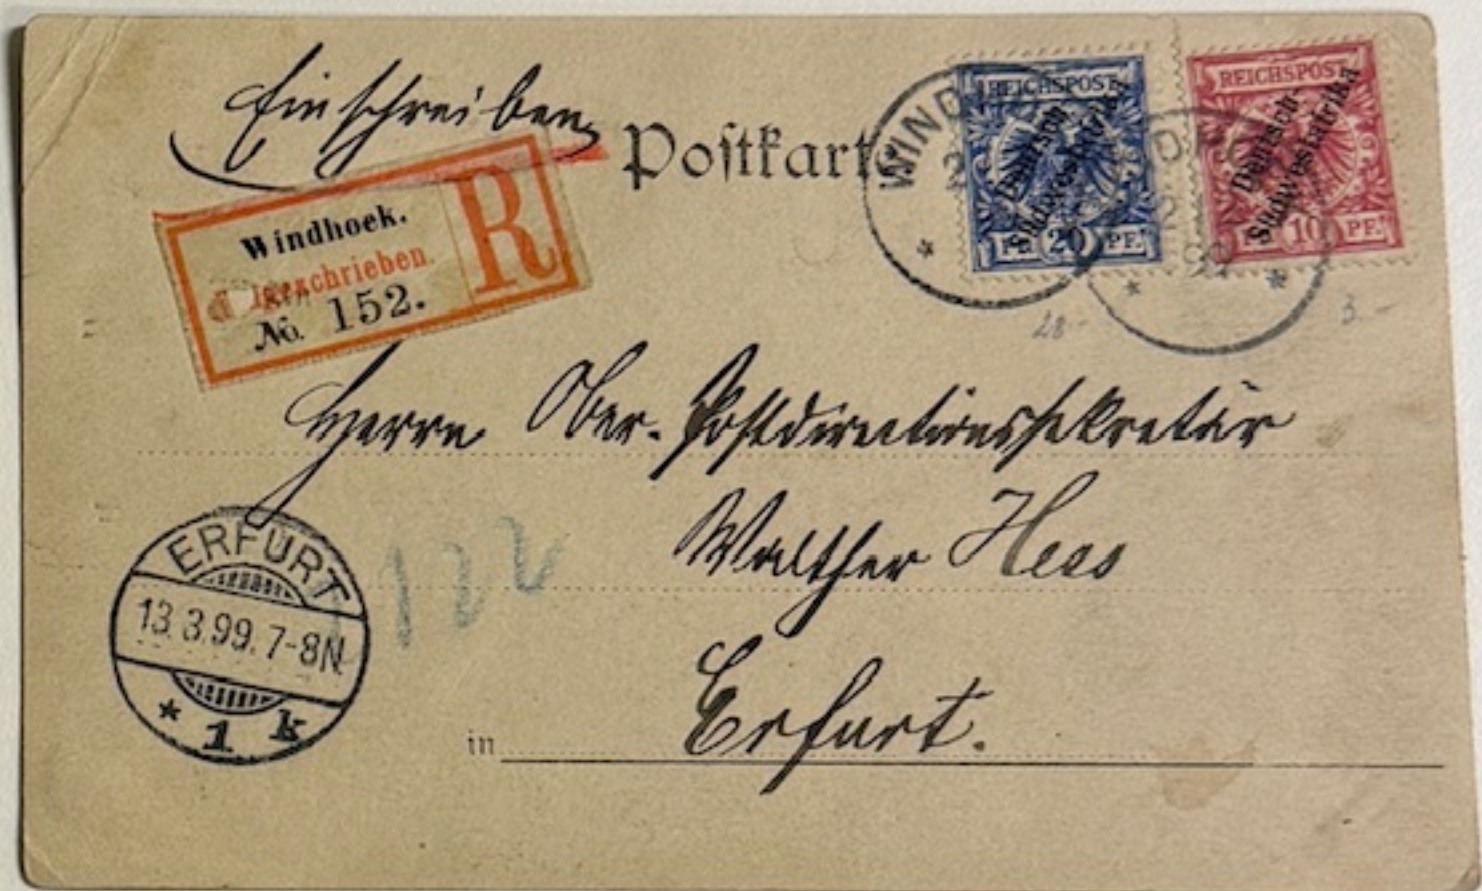 Einschreiben
Postkart
Windhoek.
Eingeschrieben
No. 152.
R
REICHSPOST
Deutsch-
Südwestafrika
20 PF.
REICHSPOST
Deutsch-
Südwestafrika
10 PF.
WIND
20.-
3.-
Herrn Ober-Postdirectionssekretär
Walther Hess
ERFURT
13.3.99.7-8N.
* 1 k
122
in Erfurt.